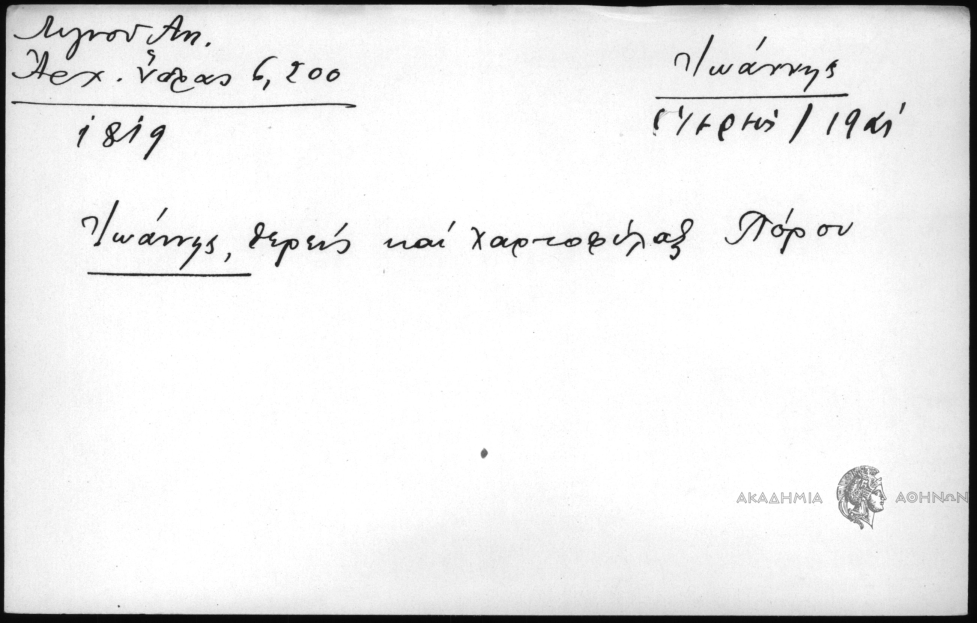 Λιγνού Αν.
Ἀρχ. Ὕδρας 6, 200
1819
Ἰωάννης
ἱερεύς / 19ος αἰ
Ἰωάννης, ἱερεύς καί χαρτοφύλαξ Πόρου
ΑΚΑΔΗΜΙΑ ΑΘΗΝΩΝ